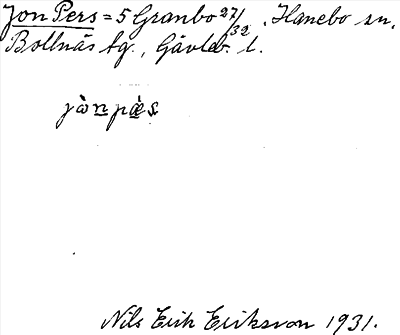 Jon Pers = 5 Granbo 27/32. Hanebo sn,
Bollnäs tg., Gävleb. l.
jò̀npæ̀s
Nils Erik Eriksson 1931.